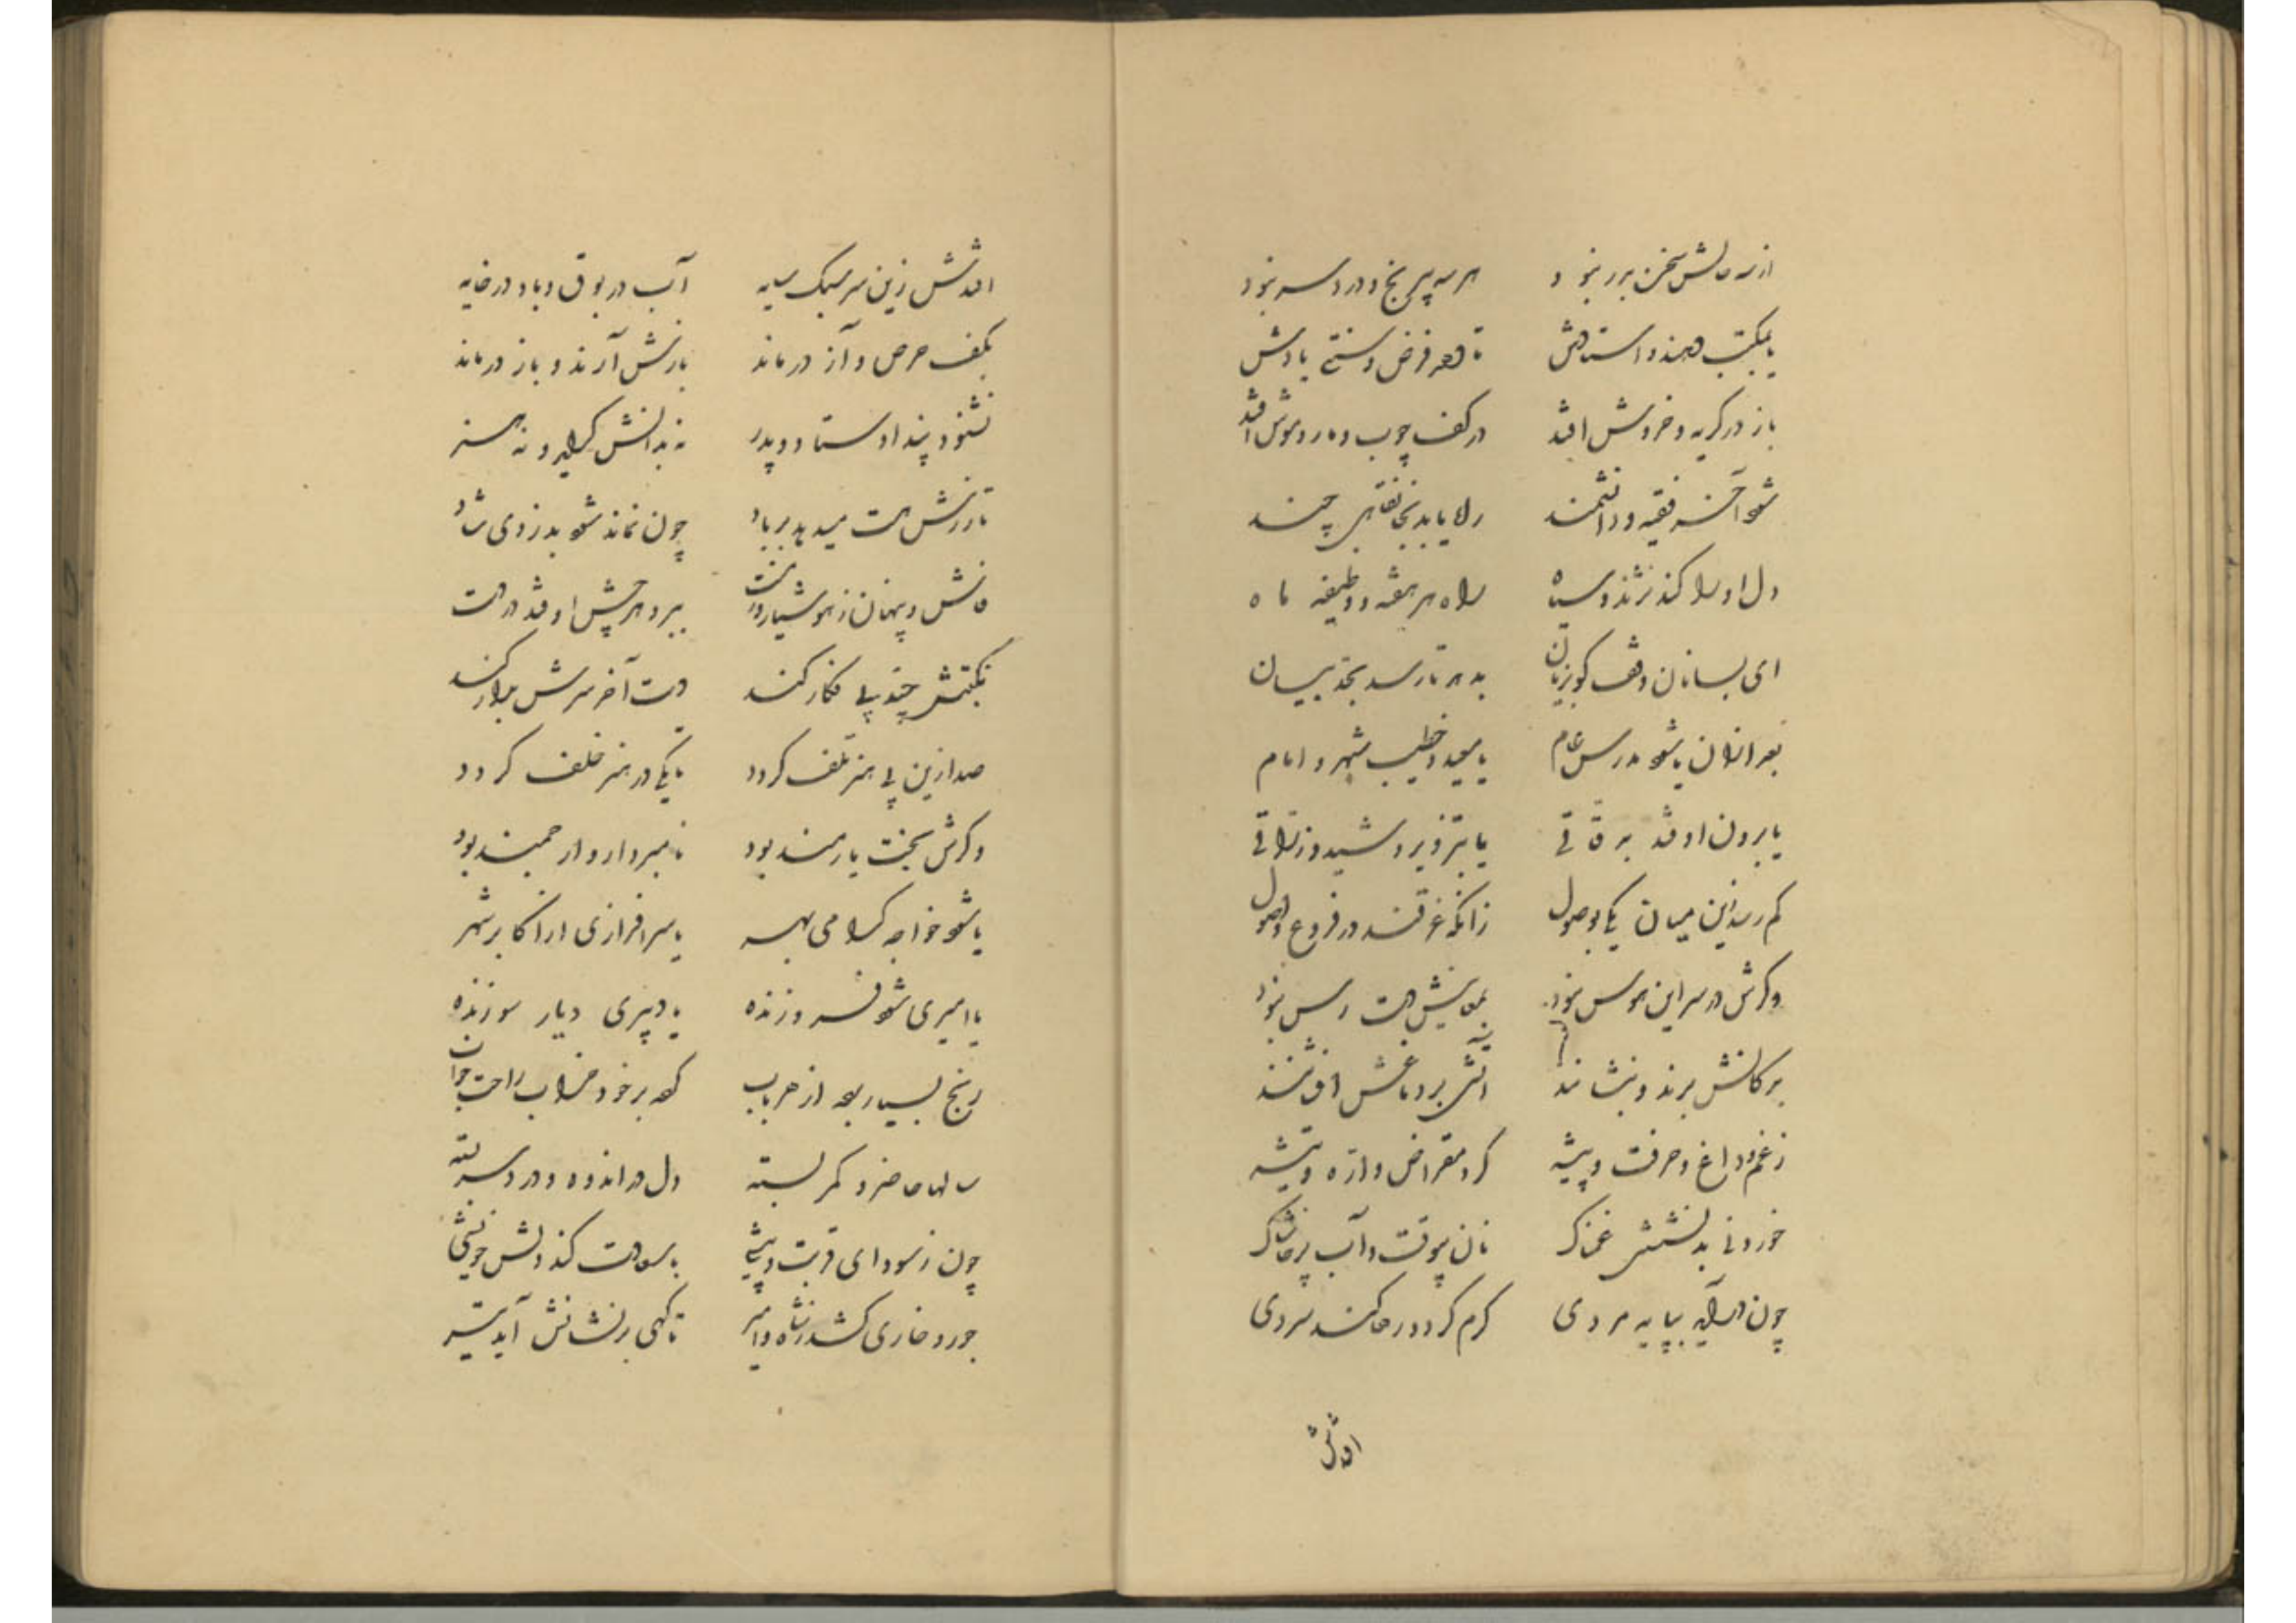 از سه سالش سخن بدر نبود هر سه پر رنج و درد سر نبود
یا بمکتب دهند و استادش تا دهد فرض و سنتی یادش
باز در گریه و خروش افتد در کف چوب و مار و موش افتد
شود آخر فقیه و دانشمند
دل او را کند نژند و سیاه راه هر هفته و وظیفه ماه
بدهد تا رسد بخبز بیسان
بعد از آن یا شود مدرس عام یا معید و خطیب شهر و امام
یا برون اوفتد یا بتزویر و شید و زراقی
کم رسد زین میان یکی بوصول زانکه غرقند در فروع و اصول
ورکش در سر این هوس نبود بمعانیش دست رس نبود
بر دکانش برند و بنشانند آتشی بر دماغش افشانند
زخم و داغ و حرفت و پیشه گرد مقراض و اره و تیشه
خوردنی بد نشستنش غمناک نان بیوقت و آب پر خاشاک
چون در آید بپایه مردی گرم گردد رها کند سردی
افتدش
افتدش زین سر سبک سایه آب در بوق و باد در خایه
بکف حرص و آز درماند بازش آرند و باز درماند
نشنود پند اوستاد و پدر نه بدانش گراید و نه هنر
تا زرش هست میدهد بر باد چون نماند شود بدزدی شاد
فاش و پنهان ز هوشیار و ز مست ببرد هر چش اوفتد در دست
نکبتش چند پی فکار کند دست آخر سرش بدار کند
صد ازین بی هنر تلف گردد تا یکی در هنر خلف گردد
ورکش بخت یارمند بود نامبردار و ارجمند بود
یا شود خواجه گرامی بهر یا سرافرازی از اکابر شهر
یا امیری شود فروزنده یا دبیری دیار سوزنده
رنج بسیار برده از هر باب کرده بر خود حرام راحت و خواب
سالها حاضر و کمر بسته دل در اندوه و درد سر بسته
چون ز سودای قربت و پیشی با سعادت کند دلش خویشی
جور و خاری کشد ز شاه و امیر تا گهی بر نشانش آید تیر